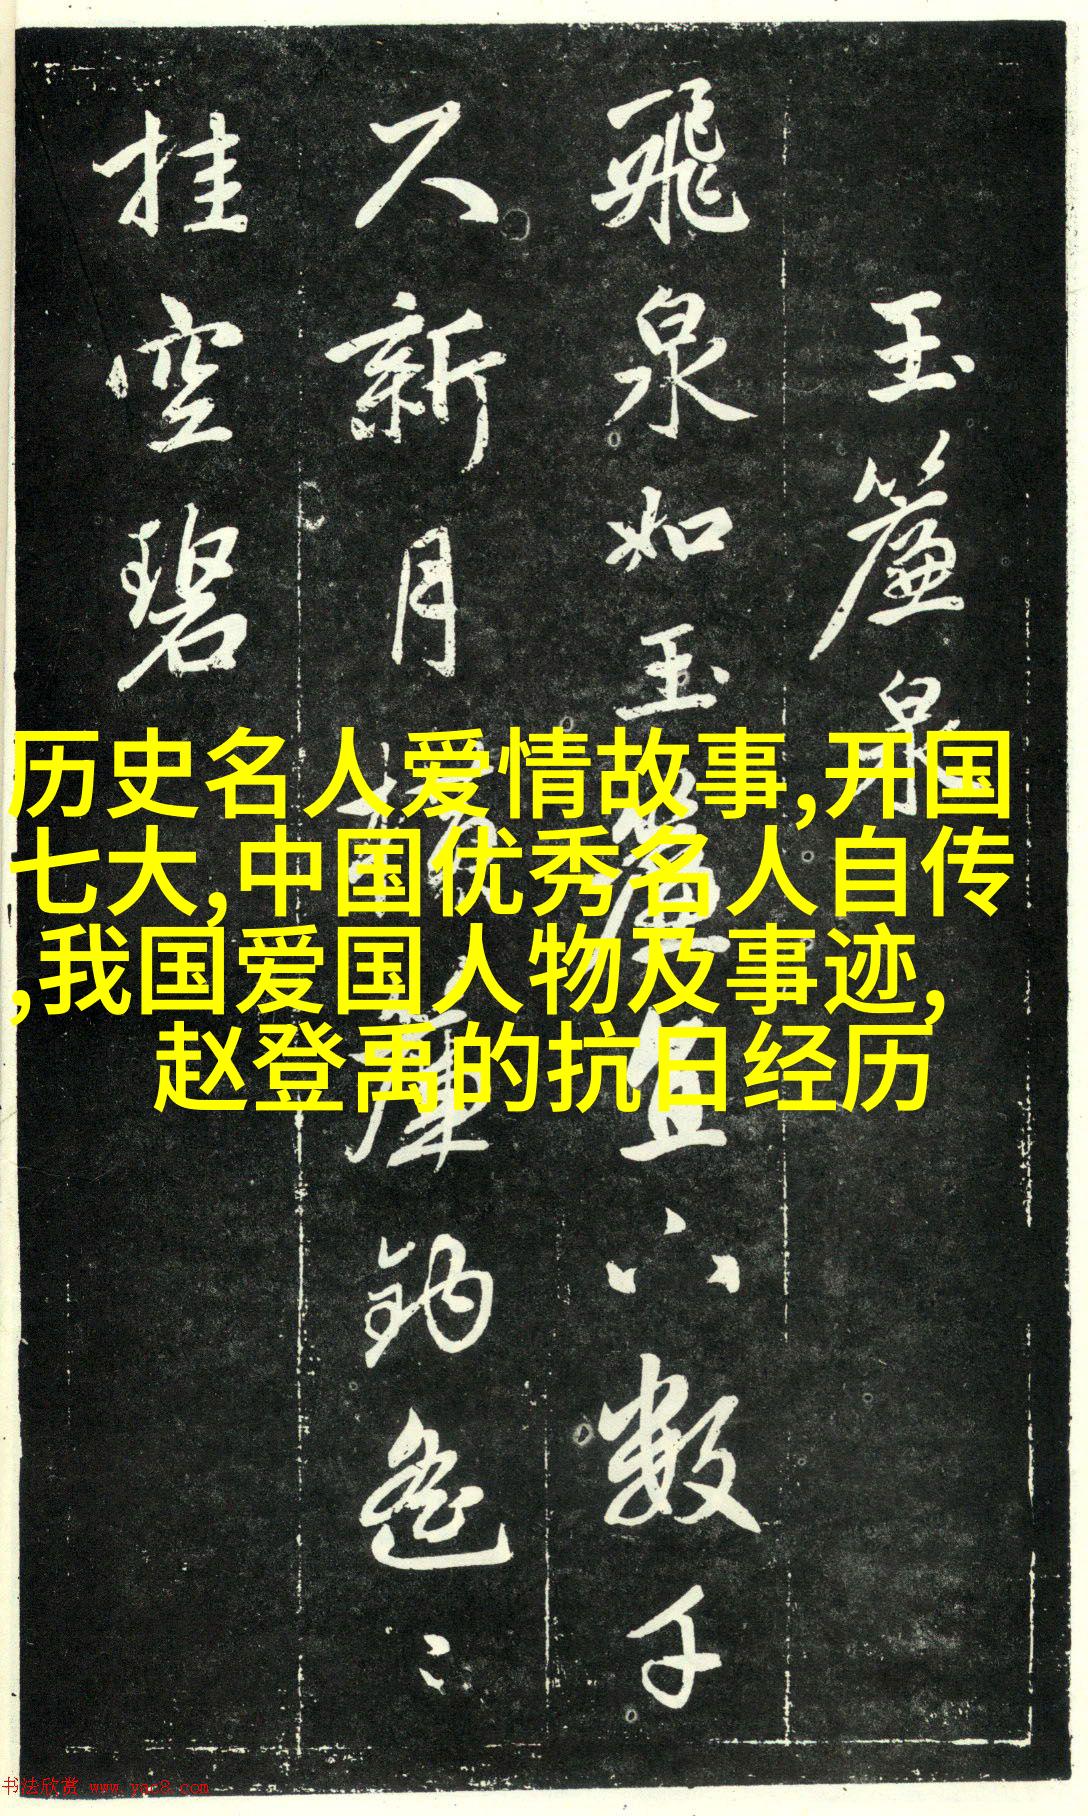 玉簾泉
飛泉如玉簾直下數千
尺新月橫簾鈎遙〻
挂空碧
历史名人爱情故事,开国
七大,中国优秀名人自传
,我国爱国人物及事迹,
赵登禹的抗日经历
书法欣赏 www.yac8.com